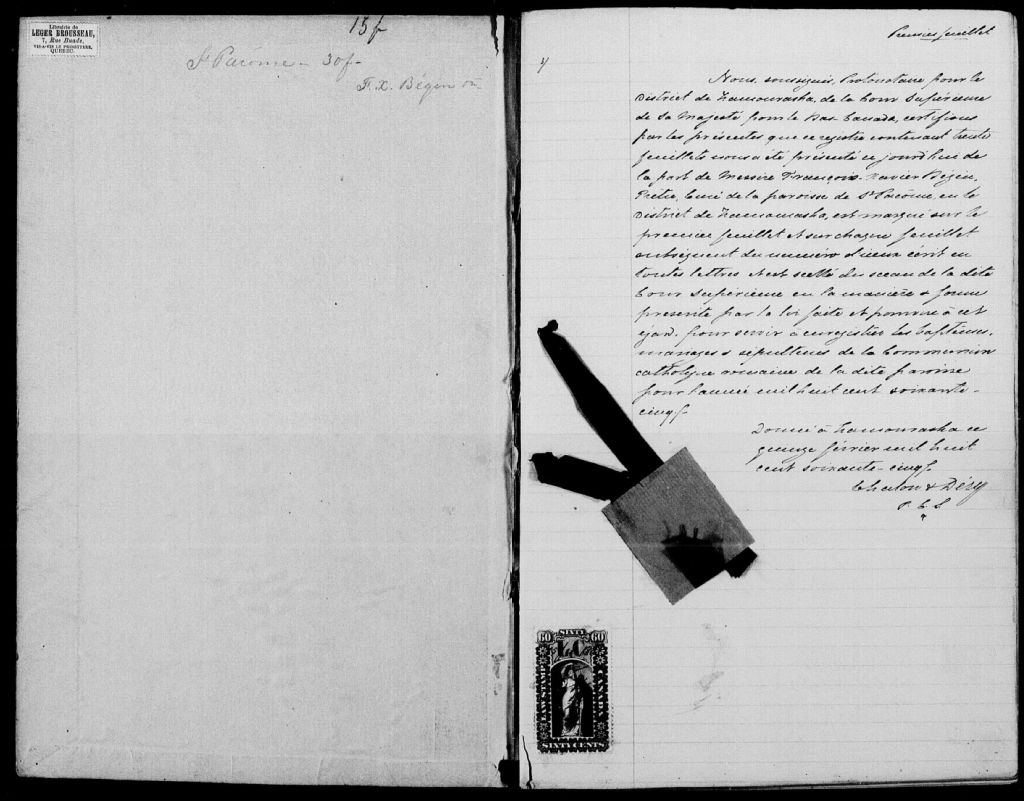 Librairie de
LEGER BROUSSEAU,
7, Rue Buade,
VIS-A-VIS LE PRESBYTERE,
QUEBEC.
15 f
St Pacôme - 30 f.
F. X. Bégin
Premier feuillet
Nous, soussignés, Protonotaire pour le
District de Kamouraska, de la Cour Supérieure
de Sa Majesté pour le Bas-Canada, certifions
par les présentes que ce registre contenant trente
feuillets nous a été présenté ce jourd'hui de
la part de Messire François-Xavier Bégin,
Prêtre, Curé de la paroisse de St Pacôme, en le
District de Kamouraska, est marqué sur le
premier feuillet et sur chaque feuillet
subséquent du numéro d'iceux écrit en
toutes lettres et est scellé du sceau de la dite
Cour Supérieure en la manière & forme
presente par la loi faite et pourvue à cet
égard. pour servir à enregistrer les baptêmes,
mariages & sépultures de la Communion
catholique romaine de la dite paroisse
pour l'année mil huit cent soixante-
cinq.
Donné à Kamouraska ce
quinze février mil huit
cent soixante-cinq.
& Déry
P. C. S
60 SIXTY 60
LAW STAMP
L C
CANADA
SIXTY CENTS